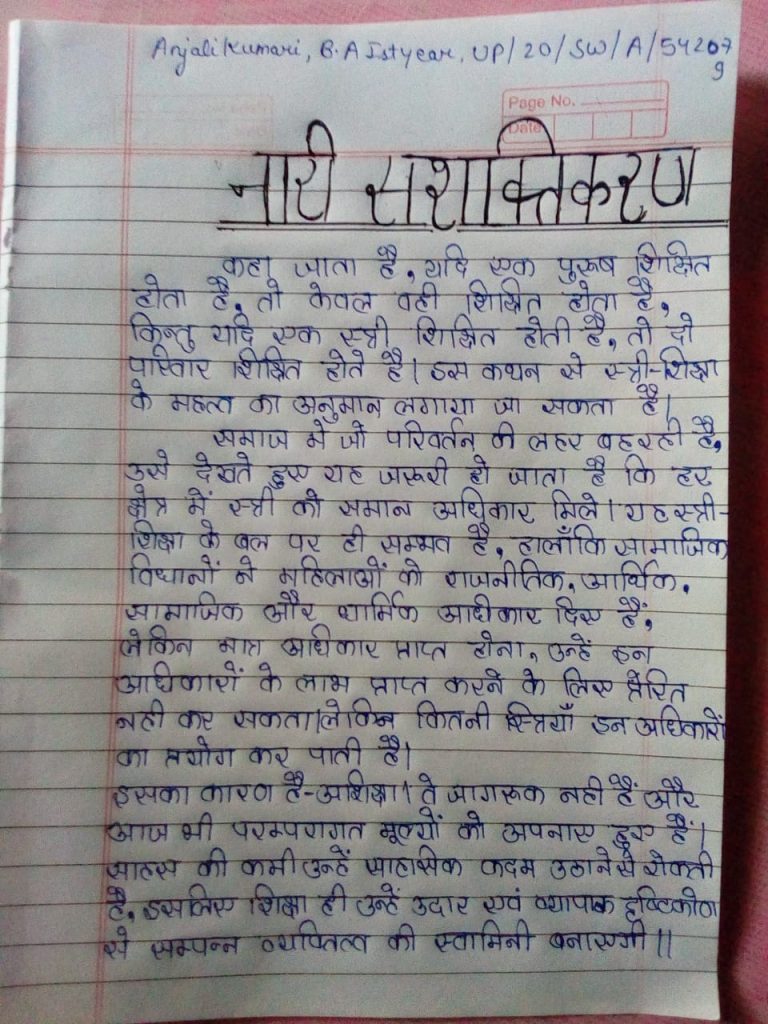 Anjali kumari, B.A Ist year, UP/20/SW/A/54207
9
Page No.
Date
नारी सशक्तिकरण
कहा जाता है, यदि एक पुरूष शिक्षित
होता है, तो केवल वही शिक्षित होता है,
किन्तु यदि एक स्त्री शिक्षित होती है, तो दो
परिवार शिक्षित होते है। इस कथन से स्त्री-शिक्षा
के महत्व का अनुमान लगाया जा सकता है।
समाज में जो परिवर्तन की लहर बह रही है,
उसे देखते हुए यह जरूरी हो जाता है कि हर
क्षेत्र में स्त्री को समान अधिकार मिले। यह स्त्री-
शिक्षा के बल पर ही सम्भव है, हालाँकि सामाजिक
विधानों ने महिलाओं को राजनीतिक, आर्थिक,
सामाजिक और धार्मिक अधिकार दिए हैं,
लेकिन मात्र अधिकार प्राप्त होना, उन्हें इन
अधिकारों के लाभ प्राप्त करने के लिए प्रेरित
नही कर सकता। लेकिन कितनी स्त्रियाँ इन अधिकारों
का प्रयोग कर पाती है।
इसका कारण है-अशिक्षा। वे जागरूक नही हैं और
आज भी परम्परागत मूल्यों को अपनाए हुए हैं।
साहस की कमी उन्हें साहसिक कदम उठाने से रोकती
है, इसलिए शिक्षा ही उन्हें उदार एवं व्यापाक दृष्टिकोण
से सम्पन्न व्यक्तित्व की स्वामिनी बनाएगी।।